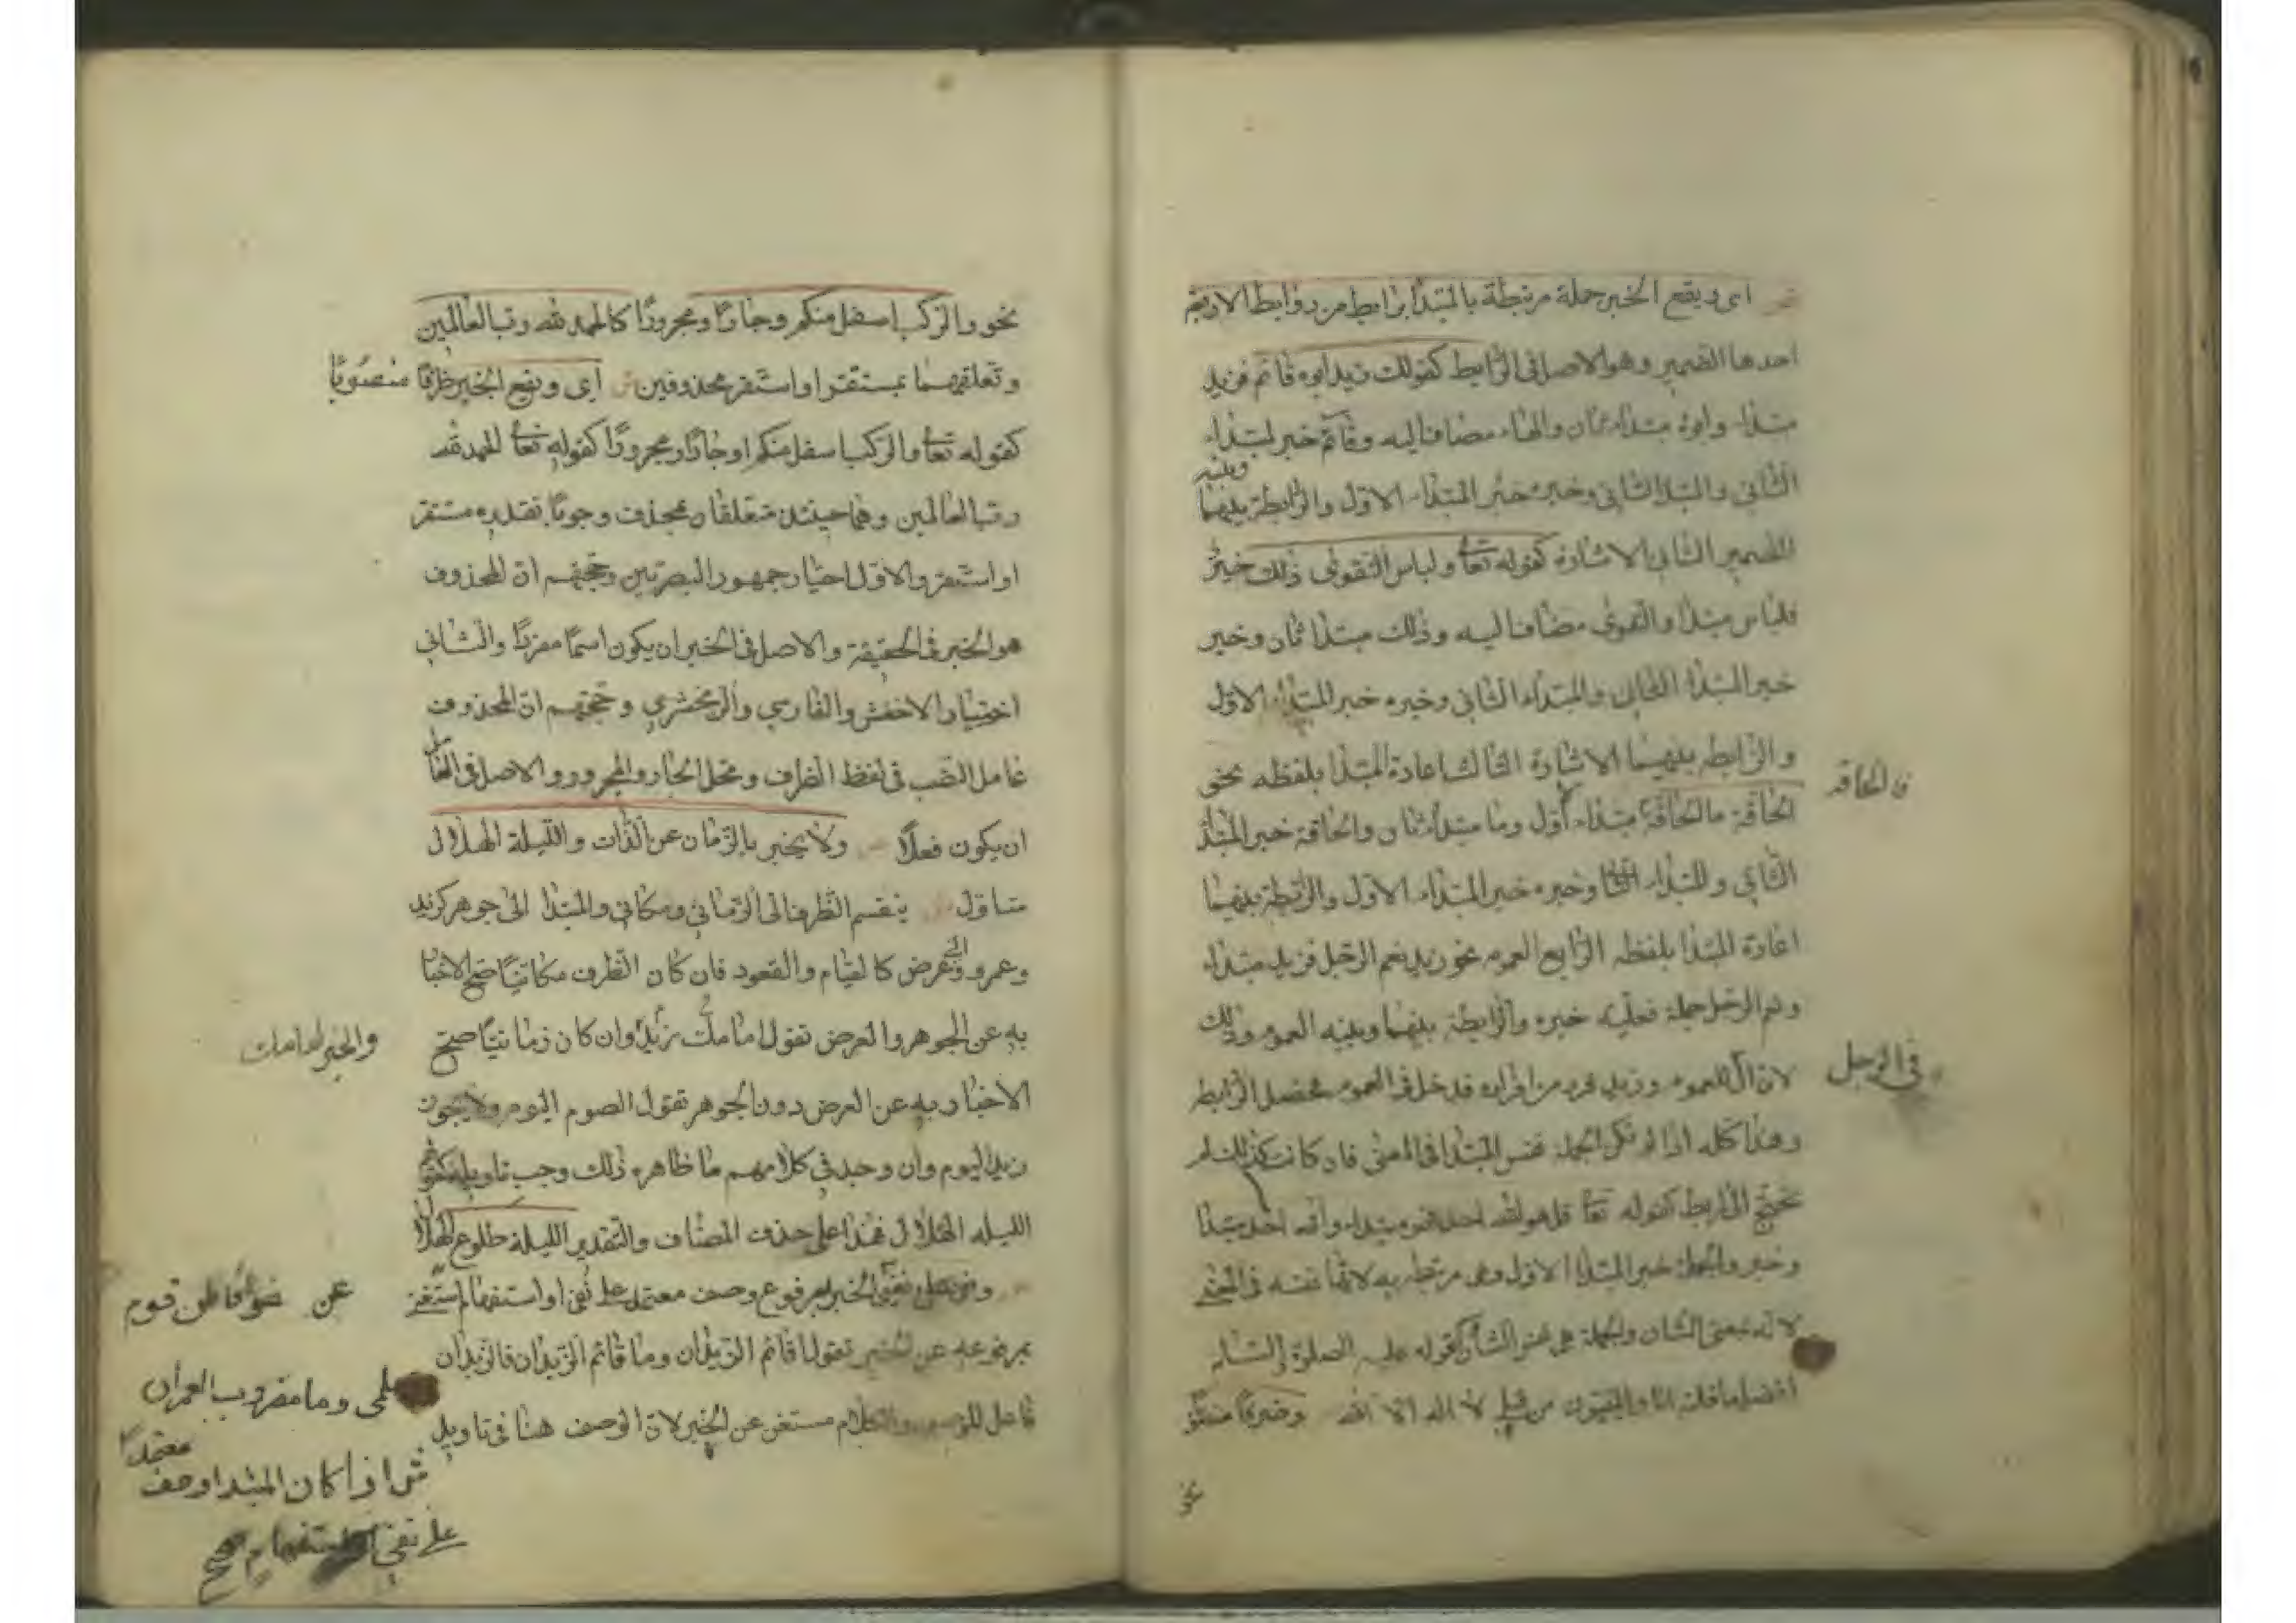 اى ويقع الخبر جملة مرتبطة بالمبتدأ برابط من روابط الاربعة
احدها الضمير وهو الاصل فى الرابط كقولك زيد ابوه قائم فزيد
مبتداء وابوه مبتداء ثان والهاء مضاف اليه وقائم خبر لمبتداء
الثانى والمبتدا الثانى وخبره خبر المبتداء الاول والرابطة بينهما
وبينه
الضمير الثانى الاشارة كقوله تعا ولباس التقوى ذلك خير
فلباس مبتدا والتقوى مضاف اليه وذلك مبتدا ثان وخير
خبر المبتدا الثانى والمبتداء الثانى وخبره خبر للمبتداء الاول
والرابطه بينهما الاشارة الثالث اعادة المبتدا بلفظه نحو
الحاقة ما الحاقة مبتداء اول وما مبتدا ثان والحاقة خبر المبتدأ
فالحاقه
الثانى والمبتداء الثا وخبره خبر المبتداء الاول والرابطة بينهما
اعادة المبتدا بلفظه الرابع العموم نحو زيد نعم الرجل فزيد مبتداء
ونعم الرجل جملة فعلية خبره والرابطة بينهما وبينه العموم وذلك
لان ال للعموم وزيد فرد من افراده فدخل فى العموم فحصل الرابط
فى الرجل
وهذا كله اذا لم تكن الجملة نفس المبتدا فى المعنى فان كانت كذلك لم
تحتج الى رابط كقوله تعا قل هو الله احد فهو مبتداء والله احد مبتدا
وخبر والجملة خبر المبتدا الاول وهى مرتبطه به لانها نفسه فى المعنى
لانه بمعنى الشان والجملة هى نفس الشان كقوله عليه الصلوة والسلام
افضل ما قلته انا والنبيون من قبلى لا اله الا الله وظرفا منصوبا
نحو
نحو والركب اسفل منكم وجارا ومجرورا كالحمد لله رب العالمين
وتعلقهما بمستقر او استقر محذوفين ش اى ويقع الخبر ظرفا منصوبا
كقوله تعا والركب اسفل منكم او جارا ومجرورا كقوله تعا الحمد لله
رب العالمين وهما حينئذ متعلقان بمحذوف وجوبا تقديره مستقر
او استقر والاول اختيار جمهور البصريين وحجتهم ان المحذوف
هو الخبر فى الحقيقة والاصل فى الخبر ان يكون اسما مفردا والثانى
اختيار الاخفش والفارسي والزمخشري وحجتهم ان المحذوف
عامل النصب فى لفظ الظرف ومحل الجار والمجرور والاصل فى العامل
ان يكون فعلا ولا يخبر بالزمان عن الذات والليلة الهلال
متاول ينقسم الظرف الى الزمانى ومكانى والمبتدا الى جوهر كزيد
وعمرو والى عرض كالقيام والقعود فان كان الظرف مكانيا صح الاخبا
به عن الجوهر والعرض تقول امامك زيد وان كان زمانيا صح
والخير امامك
الاخبار به عن العرض دون الجوهر تقول الصوم اليوم ولا يجوز
زيد اليوم وان وجد فى كلامهم ما ظاهره ذلك وجب تاويله كقولهم
الليله الهلال فهذا على حذف المضاف والتقدير الليلة طلوع الهلال
ويغنى عن الخبر مرفوع وصف معتمد على نفى او استفهام استغنى
عن نحو اقاطن قوم
بمرفوعه عن الخبر تقول اقائم الزيدان وما قائم الزيدان فالزيدان
سلمى وما مضروب العمران
فاعل للوصف والكلام مستغن عن الخبر لان الوصف هنا فى تاويل
ش اذا كان المبتدا وصف
معتمدا
على نفى او استفهام صح